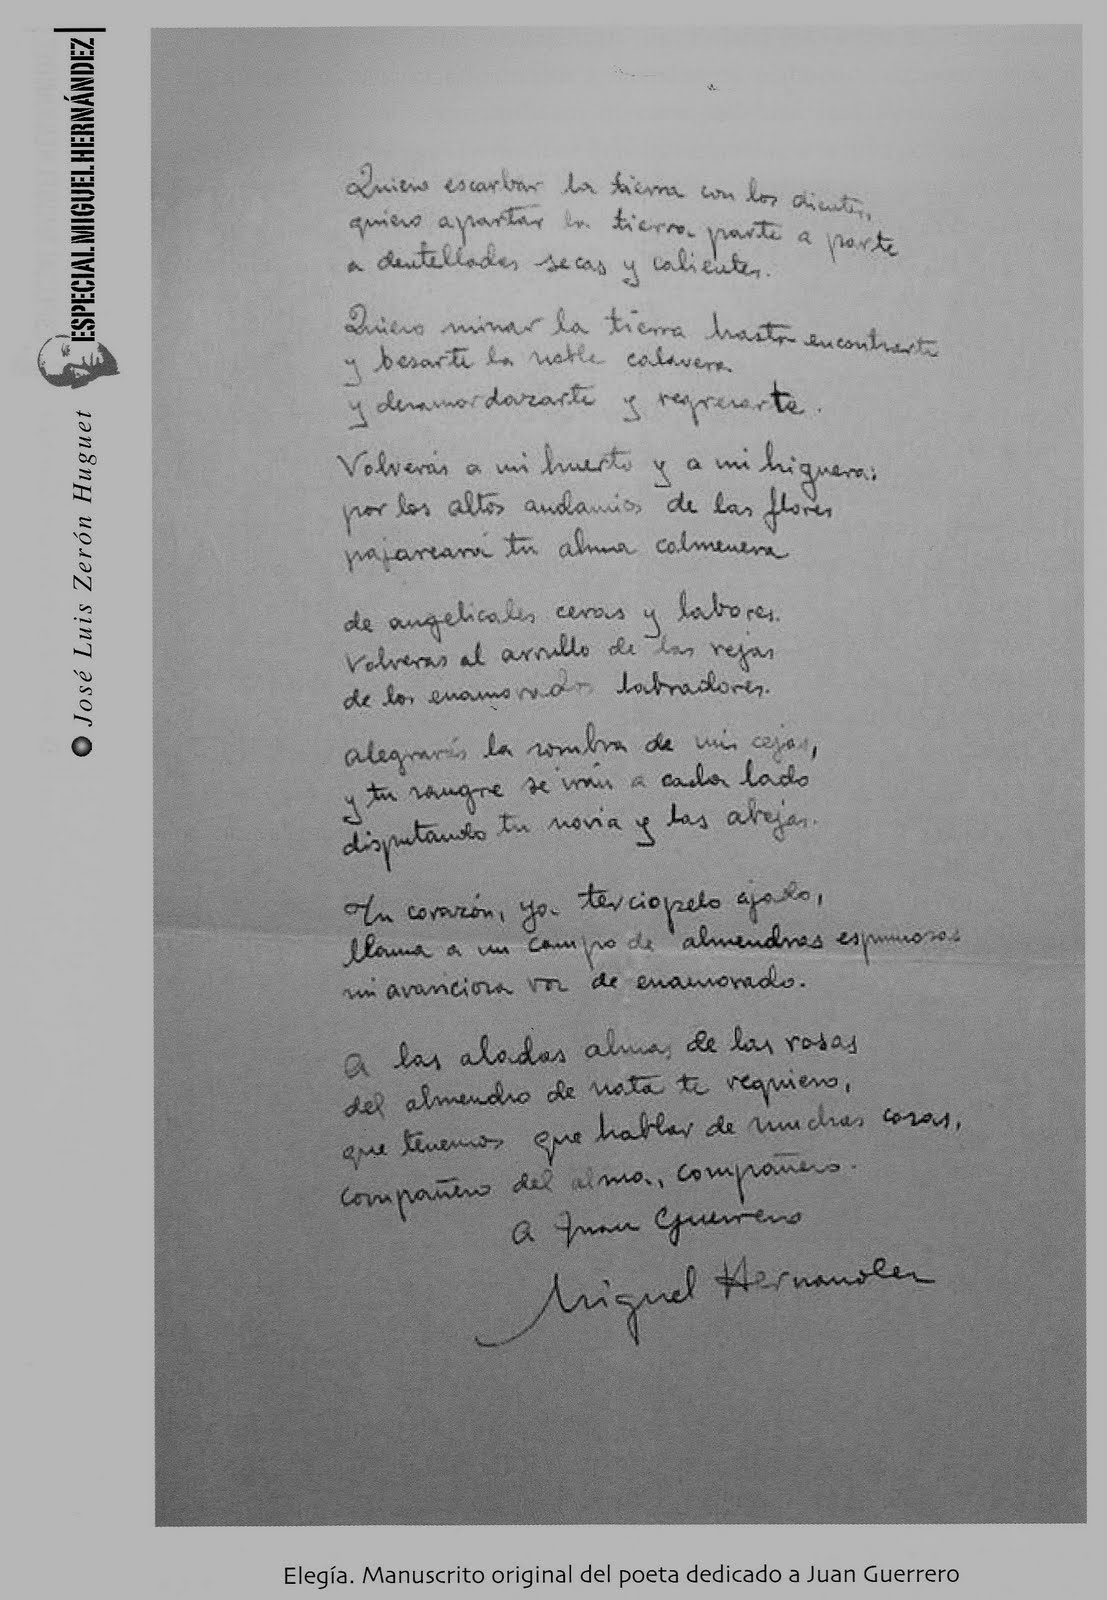 ESPECIAL MIGUEL HERNÁNDEZ
José Luis Zerón Huguet
Quiero escarbar la tierra con los dientes,
quiero apartar la tierra parte a parte
a dentelladas secas y calientes.
Quiero minar la tierra hasta encontrarte
y besarte la noble calavera
y desamordazarte y regresarte.
Volverás a mi huerto y a mi higuera:
por los altos andamios de las flores
pajareará tu alma colmenera
de angelicales ceras y labores.
Volverás al arrullo de las rejas
de los enamorados labradores.
Alegrarás la sombra de mis cejas,
y tu sangre se irán a cada lado
disputando tu novia y las abejas.
Tu corazón, ya terciopelo ajado,
llama a un campo de almendras espumosas
mi avariciosa voz de enamorado.
A las aladas almas de las rosas
del almendro de nata te requiero,
que tenemos que hablar de muchas cosas,
compañero del alma, compañero.
A Juan Guerrero
Miguel Hernandez
Elegía. Manuscrito original del poeta dedicado a Juan Guerrero